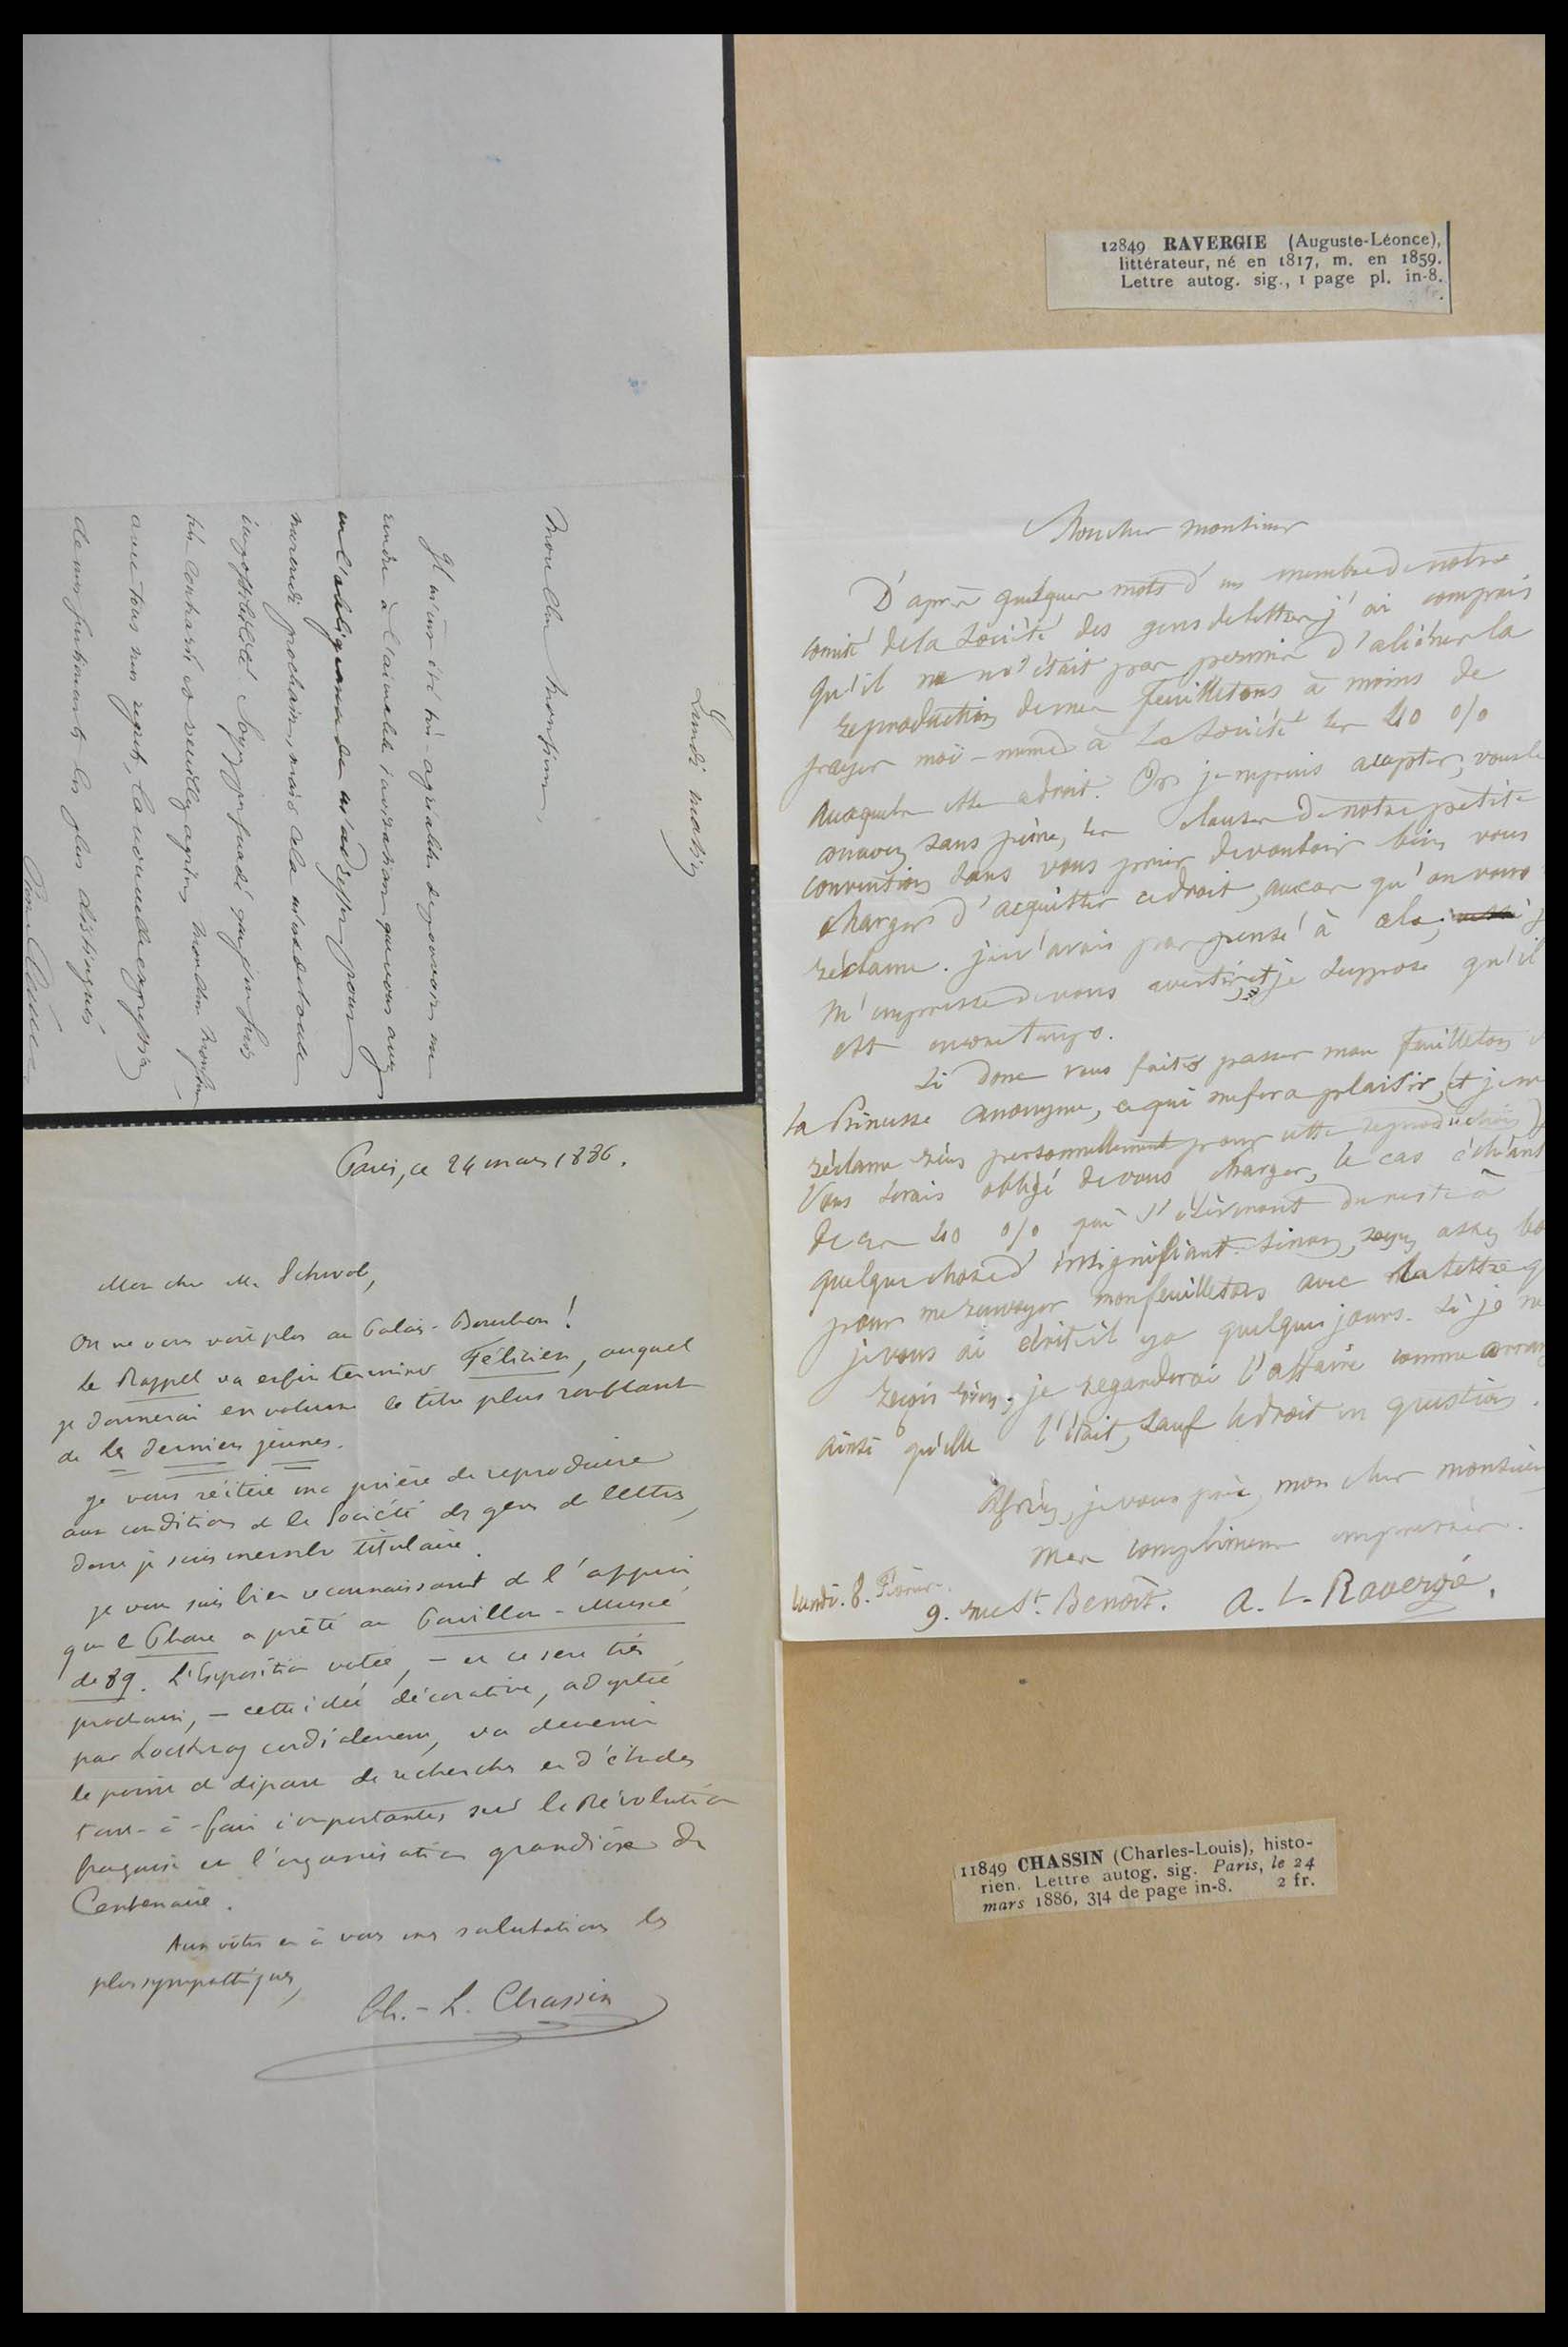 Lundi matin
Mon cher Monsieur,
Il m'eût été très-agréable de pouvoir me
rendre à l'aimable invitation que vous avez
eu l'obligeance de m'adresser pour
mercredi prochain, mais cela m'est de toute
impossibilité. Soyez persuadé que j'en suis
très contrarié et veuillez agréer, mon cher Monsieur,
avec tous mes regrets, la nouvelle expression
de mes sentiments les plus distingués
12849 RAVERGIE (Auguste-Léonce),
littérateur, né en 1817, m. en 1859.
Lettre autog. sig., 1 page pl. in-8.
fr.
Mon cher monsieur
D'après quelques mots d'un membre de notre
comité de la Société des gens de lettres j'ai compris
qu'il ne m'était pas permis d'aliéner la
reproduction de mes feuilletons à moins de
payer moi-même à la Société les 40 %
auxquels elle a droit. Or je ne puis accepter, vous le
concevez sans peine, les clauses de notre petite
convention sans vous prier de vouloir bien vous
charger d'acquitter ce droit, au cas qu'on vous
réclame. je n'avais pas pensé à cela; j
m'empresse de vous avertir et je suppose qu'il
est encore temps.
Si donc vous faites passer mon feuilleton
la Princesse anonyme, ce qui me fera plaisir, (et je ne
réclame rien personnellement pour cette reproduction) je
vous serais obligé de vous charger, le cas échéant
de ces 40 % qui s'élèveront du reste à
quelque chose d'insignifiant. Sinon, soyez assez bon
pour me renvoyer mon feuilleton avec la lettre q
je vous ai écrite il y a quelques jours. Si je ne
reçois rien, je regarderai l'affaire comme arran
ainsi qu'elle l'était, sauf le droit en question.
Agréez, je vous prie, mon cher monsieur
mes compliments empressés.
lundi. 8. Février.
9. rue St. Benoît. A. L. Ravergie.
Paris, ce 24 mars 1886.
Mon cher M. Schwob,
On ne vous voit plus au Palais-Bourbon!
Le Rappel va enfin terminer Félicien, auquel
je donnerai en volume le titre plus ronflant
de les derniers jeunes.
Je vous réitère ma prière de reproduire
aux conditions de la Société des gens de lettres,
dont je suis membre titulaire.
Je vous suis bien reconnaissant de l'appui
que le Phare a prêté au Pavillon-Musée
de 89. L'Exposition votée, – et ce sera très
prochain, – cette idée décorative, adoptée
par Lockroy cordialement, va devenir
le point de départ de recherches et d'études
tout-à-fait importantes sur la Révolution
française et l'organisation grandiose du
Centenaire.
Aux vôtres et à vous mes salutations les
plus sympathiques,
Ch.-L. Chassin
11849 CHASSIN (Charles-Louis), histo-
rien. Lettre autog. sig. Paris, le 24
mars 1886, 3|4 de page in-8. 2 fr.